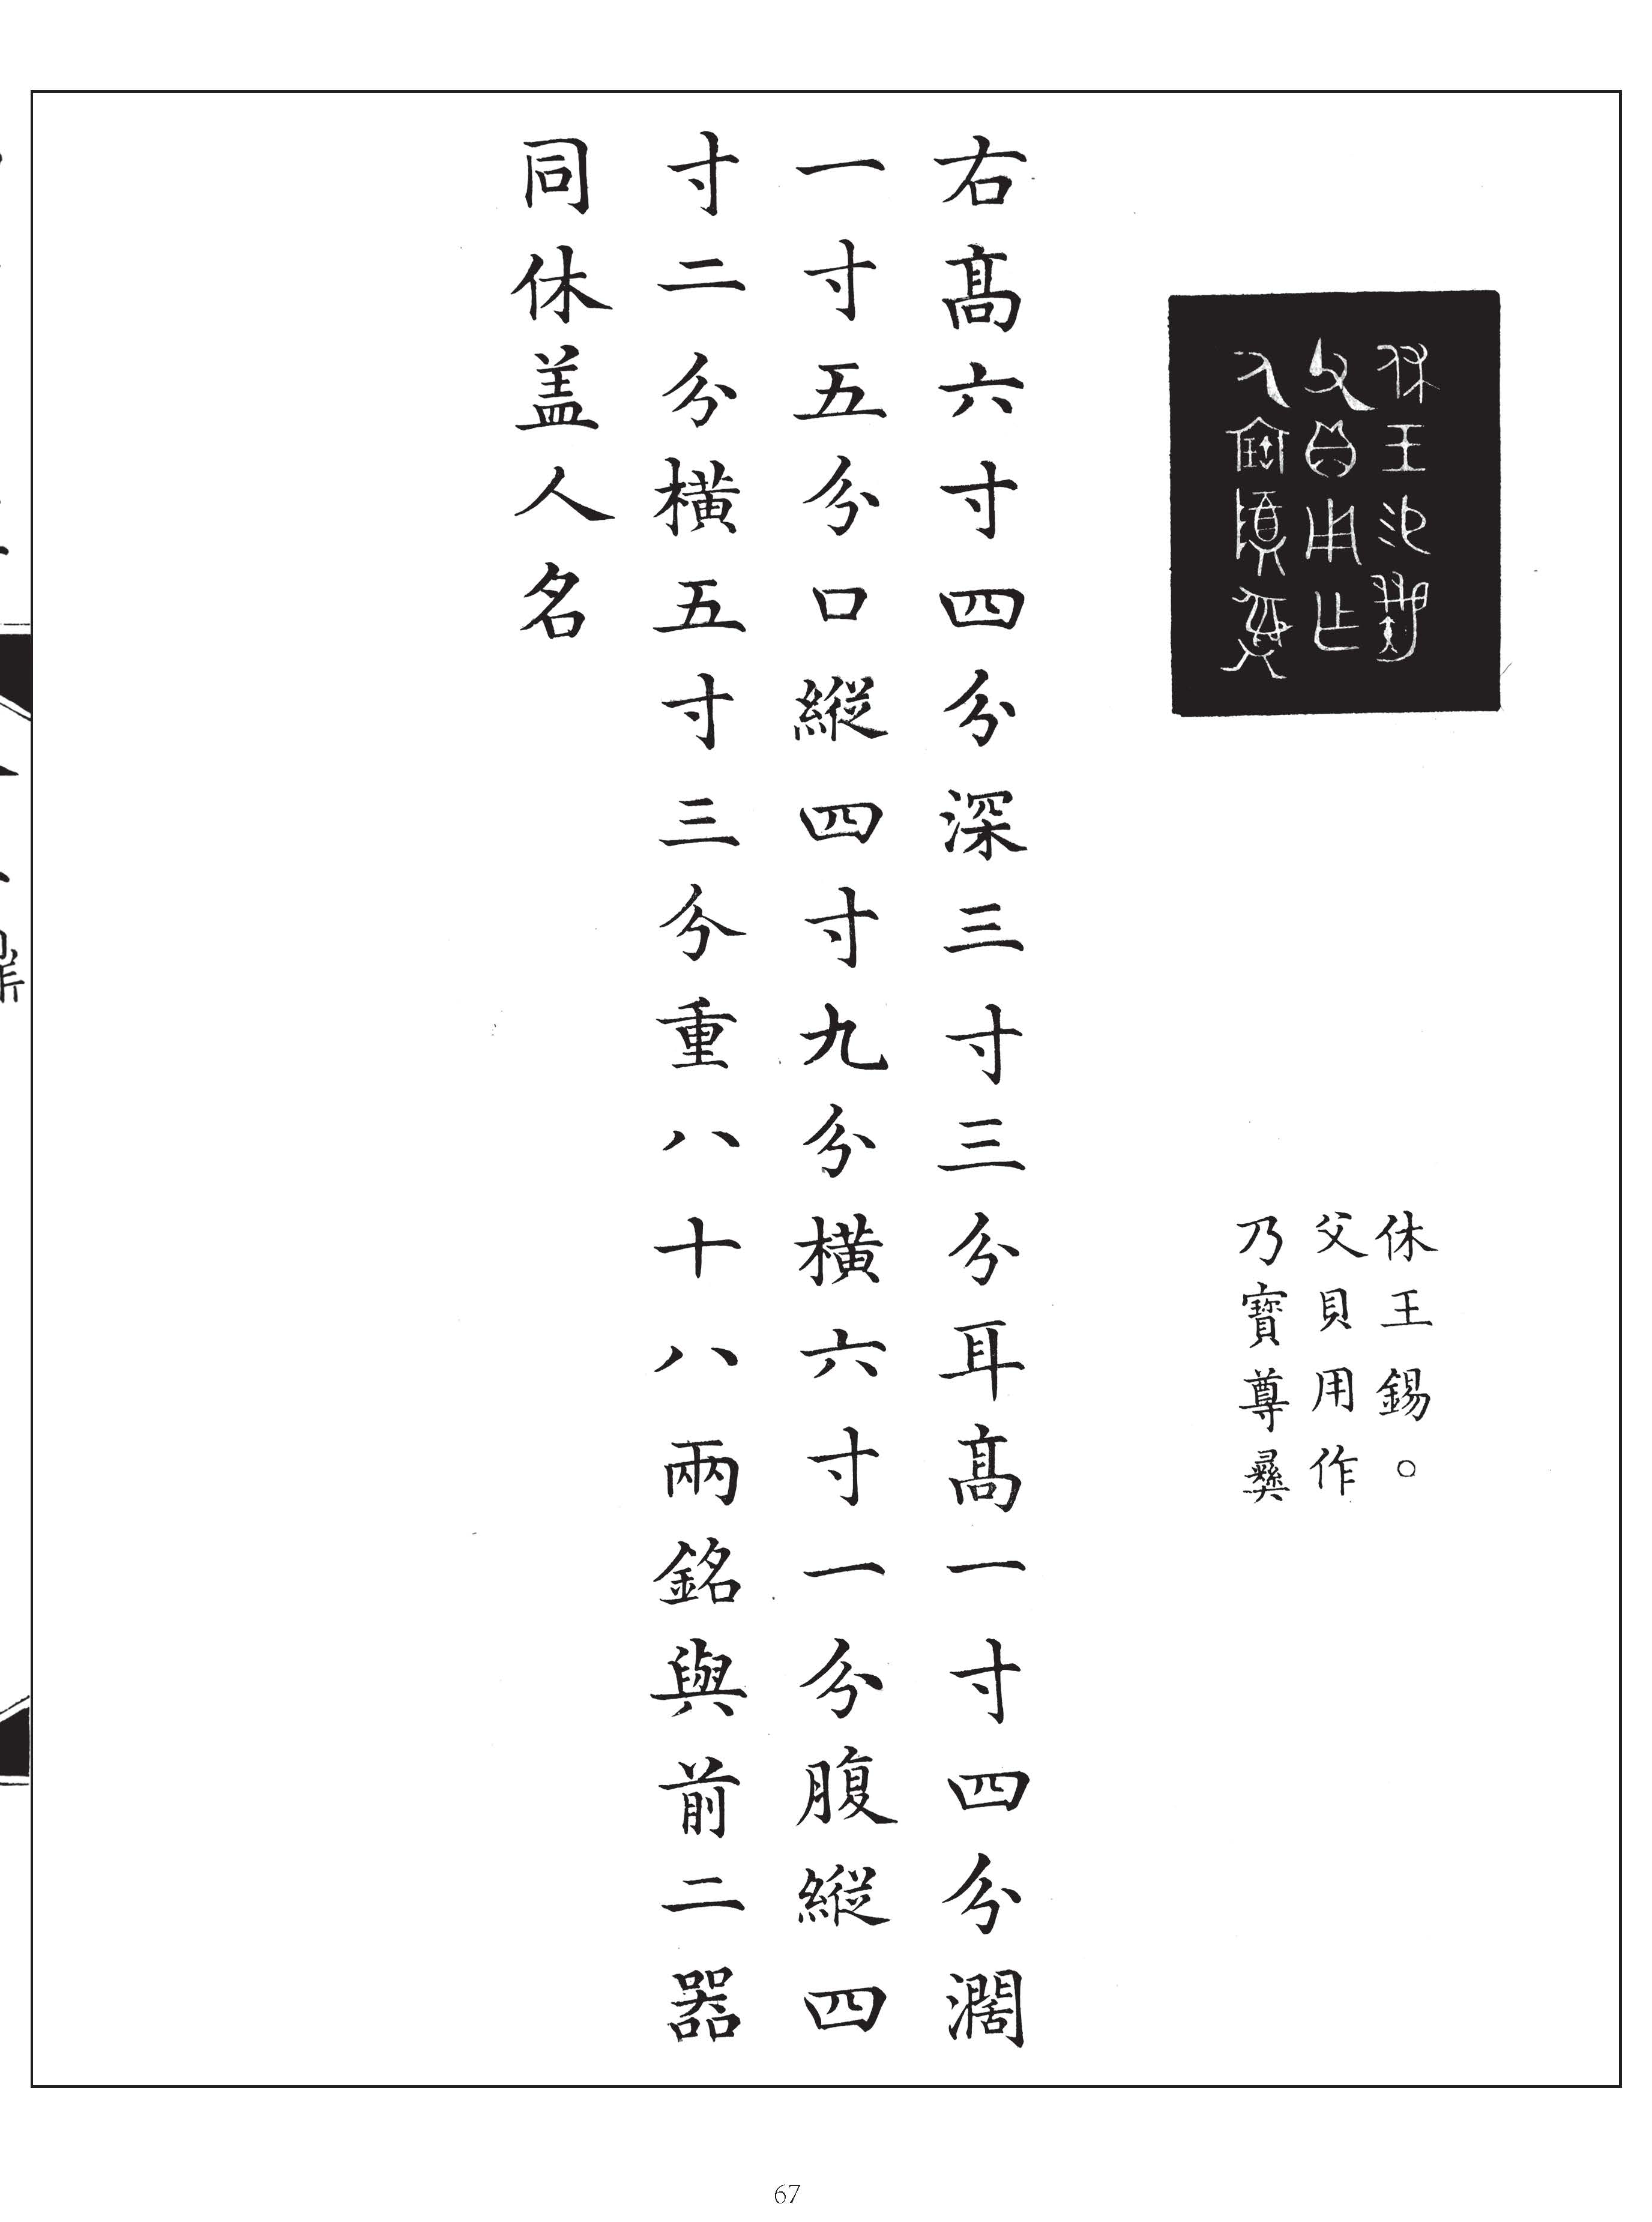 休王錫〇
父貝用作
乃寶尊彝
右高六寸四分深三寸三分耳高一寸四分濶
一寸五分口縱四寸九分橫六寸一分腹縱四
寸二分橫五寸三分重八十八兩銘與前二器
同休盖人名
67